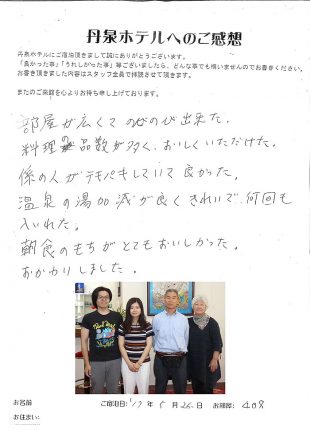 丹泉ホテルへのご感想
丹泉ホテルにご宿泊頂きまして誠にありがとうございます。
「良かった事」「うれしかった事」等ございましたら、どんな事でも構いませんのでお書きください。
お書き頂きました内容はスタッフ全員で拝読させて頂きます。
またのご来館を心よりお待ち申し上げております。
部屋が広くてのびのび出来た。
料理の品数が多く、おいしくいただけた。
係の人がテキパキしていて良かった。
温泉の湯加減が良くきれいで、何回も
入れた。
朝食のもちがとてもおいしかった。
おかわりしました。
お名前
ご宿泊日:'17年5月26日 お部屋: 408
お住まい: